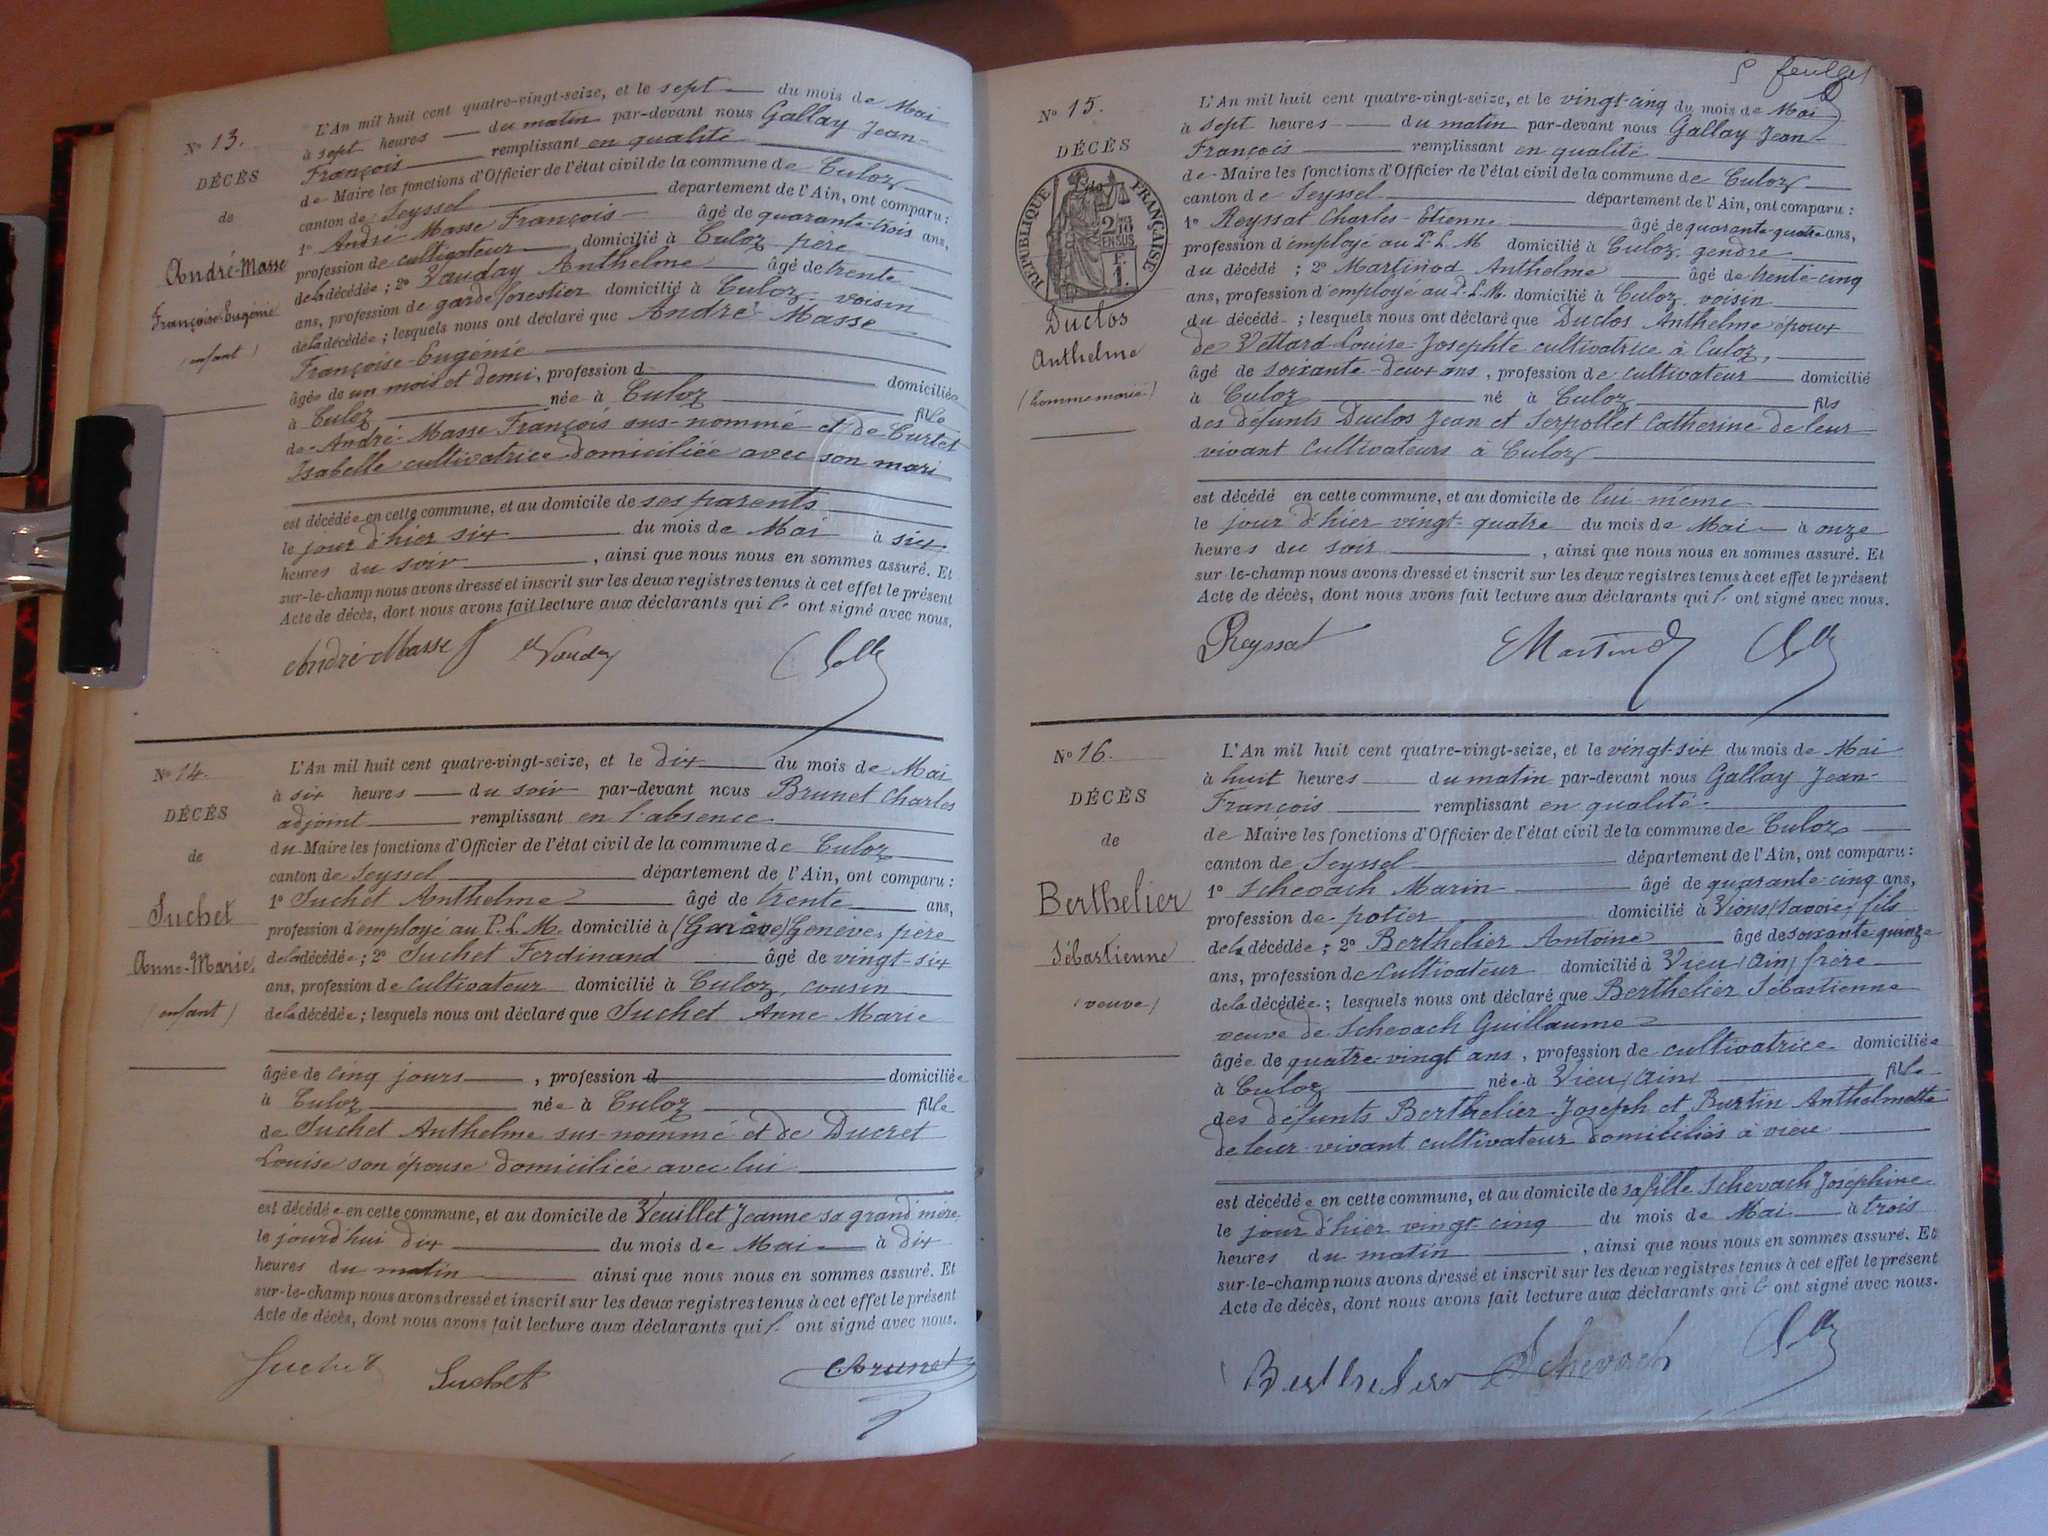 N° 13.
DÉCÈS
de
André-Masse
Françoise-Eugénie
(enfant)
L'An mil huit cent quatre-vingt-seize, et le sept du mois de Mai
à sept heures du matin par-devant nous Gallay Jean-
François remplissant en qualité
de Maire les fonctions d'Officier de l'état civil de la commune de Culoz
canton de Seyssel département de l'Ain, ont comparu :
1° André-Masse François âgé de quarante-trois ans,
profession de cultivateur, domicilié à Culoz père
de la décédée ; 2° Vauday Anthelme âgé de trente
ans, profession de garde forestier domicilié à Culoz voisin
de la décédée ; lesquels nous ont déclaré que André Masse
Françoise-Eugénie
âgée de un mois et demi, profession d domiciliée
à Culoz née à Culoz fille
de André-Masse François sus-nommé et de Curtet
Isabelle cultivatrice domiciliée avec son mari
est décédée en cette commune, et au domicile de ses parents
le jour d'hier six du mois de Mai à six
heures du soir, ainsi que nous nous en sommes assuré. Et
sur-le-champ nous avons dressé et inscrit sur les deux registres tenus à cet effet le présent
Acte de décès, dont nous avons fait lecture aux déclarants qui l' ont signé avec nous.
André Masse f Vauday
N° 14.
DÉCÈS
de
Suchet
Anne-Marie
(enfant)
L'An mil huit cent quatre-vingt-seize, et le dix du mois de Mai
à six heures du soir par-devant nous Brunet Charles
adjoint remplissant en l'absence
du Maire les fonctions d'Officier de l'état civil de la commune de Culoz
canton de Seyssel département de l'Ain, ont comparu :
1° Suchet Anthelme âgé de trente ans,
profession d'employé au P.L.M. domicilié à (Genève) Genève, père
de la décédée ; 2° Suchet Ferdinand âgé de vingt-six
ans, profession de cultivateur domicilié à Culoz, cousin
de la décédée ; lesquels nous ont déclaré que Suchet Anne Marie
âgée de cinq jours, profession d domiciliée
à Culoz née à Culoz fille
de Suchet Anthelme sus-nommé et de Ducret
Louise son épouse domiciliée avec lui
est décédée en cette commune, et au domicile de Veuillet Jeanne sa grand'mère
le jourd'hui dix du mois de Mai à dix
heures du matin ainsi que nous nous en sommes assuré. Et
sur-le-champ nous avons dressé et inscrit sur les deux registres tenus à cet effet le présent
Acte de décès, dont nous avons fait lecture aux déclarants qui l' ont signé avec nous.
Suchet Suchet CBrunet
5 feuillet
N° 15.
DÉCÈS
RÉPUBLIQUE FRANÇAISE
2/10 EN SUS
F. 1.
Duclos
Anthelme
(homme marié)
L'An mil huit cent quatre-vingt-seize, et le vingt-cinq du mois de Mai
à sept heures du matin par-devant nous Gallay Jean-
François remplissant en qualité
de Maire les fonctions d'Officier de l'état civil de la commune de Culoz
canton de Seyssel département de l'Ain, ont comparu :
1° Reyssat Charles-Etienne âgé de quarante-quatre ans,
profession d'employé au P.L.M domicilié à Culoz, gendre
du décédé ; 2° Martinod Anthelme âgé de trente-cinq
ans, profession d'employé au P.L.M. domicilié à Culoz voisin
du décédé ; lesquels nous ont déclaré que Duclos Anthelme époux
de Vettard Louise-Josephte cultivatrice à Culoz,
âgé de soixante-deux ans, profession de cultivateur domicilié
à Culoz né à Culoz fils
des défunts Duclos Jean et Serpollet Catherine de leur
vivant cultivateurs à Culoz
est décédé en cette commune, et au domicile de lui-même
le jour d'hier vingt-quatre du mois de Mai à onze
heures du soir, ainsi que nous nous en sommes assuré. Et
sur-le-champ nous avons dressé et inscrit sur les deux registres tenus à cet effet le présent
Acte de décès, dont nous avons fait lecture aux déclarants qui l' ont signé avec nous.
Reyssat Martinod
N° 16.
DÉCÈS
de
Berthelier
Sébastienne
(veuve)
L'An mil huit cent quatre-vingt-seize, et le vingt-six du mois de Mai
à huit heures du matin par-devant nous Gallay Jean-
François remplissant en qualité
de Maire les fonctions d'Officier de l'état civil de la commune de Culoz
canton de Seyssel département de l'Ain, ont comparu :
1° Schevach Marin âgé de quarante-cinq ans,
profession de potier domicilié à Vions (Savoie) fils
de la décédée ; 2° Berthelier Antoine âgé de soixante quinze
ans, profession de cultivateur domicilié à Vieu (Ain) frère
de la décédée ; lesquels nous ont déclaré que Berthelier Sébastienne
veuve de Schevach Guillaume
âgée de quatre-vingt ans, profession de cultivatrice domiciliée
à Culoz née à Vieu (Ain) fille
des défunts Berthelier Joseph et Burtin Anthelmette
de leur vivant cultivateur domiciliés à vieu
est décédée en cette commune, et au domicile de sa fille Schevach Joséphine
le jour d'hier vingt-cinq du mois de Mai à trois
heures du matin, ainsi que nous nous en sommes assuré. Et
sur-le-champ nous avons dressé et inscrit sur les deux registres tenus à cet effet le présent
Acte de décès, dont nous avons fait lecture aux déclarants qui l' ont signé avec nous.
Berthelier Schevach